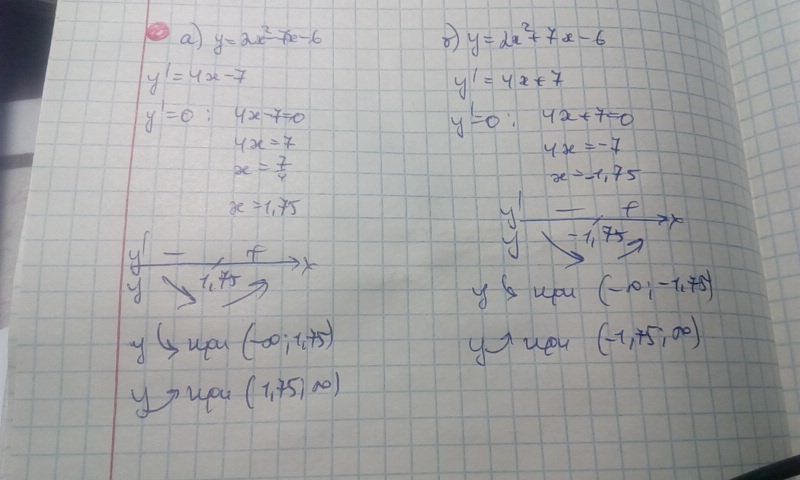 а) y = 2x² - 7x - 6
y' = 4x - 7
y' = 0 : 4x - 7 = 0
4x = 7
x = 7/4
x = 1,75
y' - +
y 1,75 x
y ↘ при (-∞; 1,75)
y ↗ при (1,75; ∞)
б) y = 2x² + 7x - 6
y' = 4x + 7
y' = 0 : 4x + 7 = 0
4x = -7
x = -1,75
y' - + x
y -1,75
y ↘ при (-∞; -1,75)
y ↗ при (-1,75; ∞)